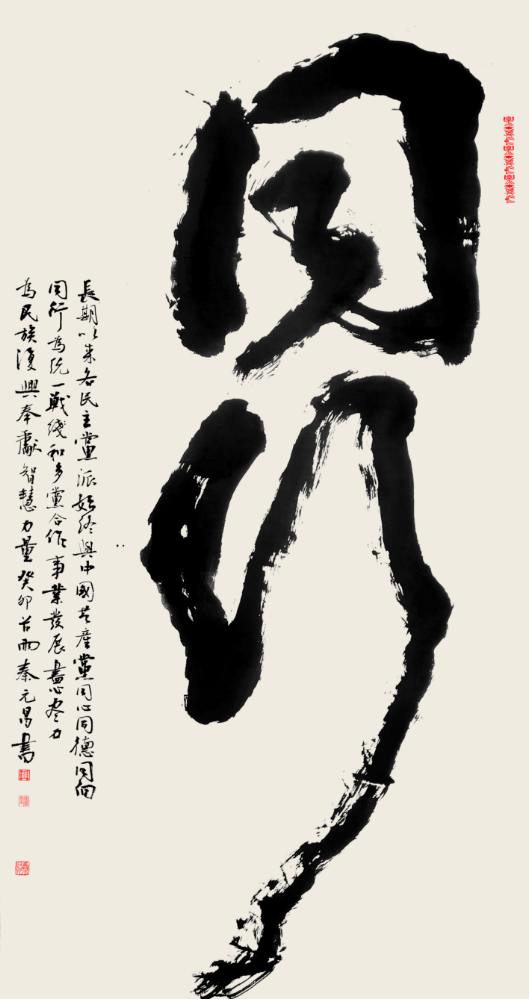 同行
長期以来各民主黨派始終與中國共産黨同心同德同向
同行為统一戰綫和多黨合作事業發展盡心尽力
為民族復興奉獻智慧力量癸卯谷雨秦元昌書